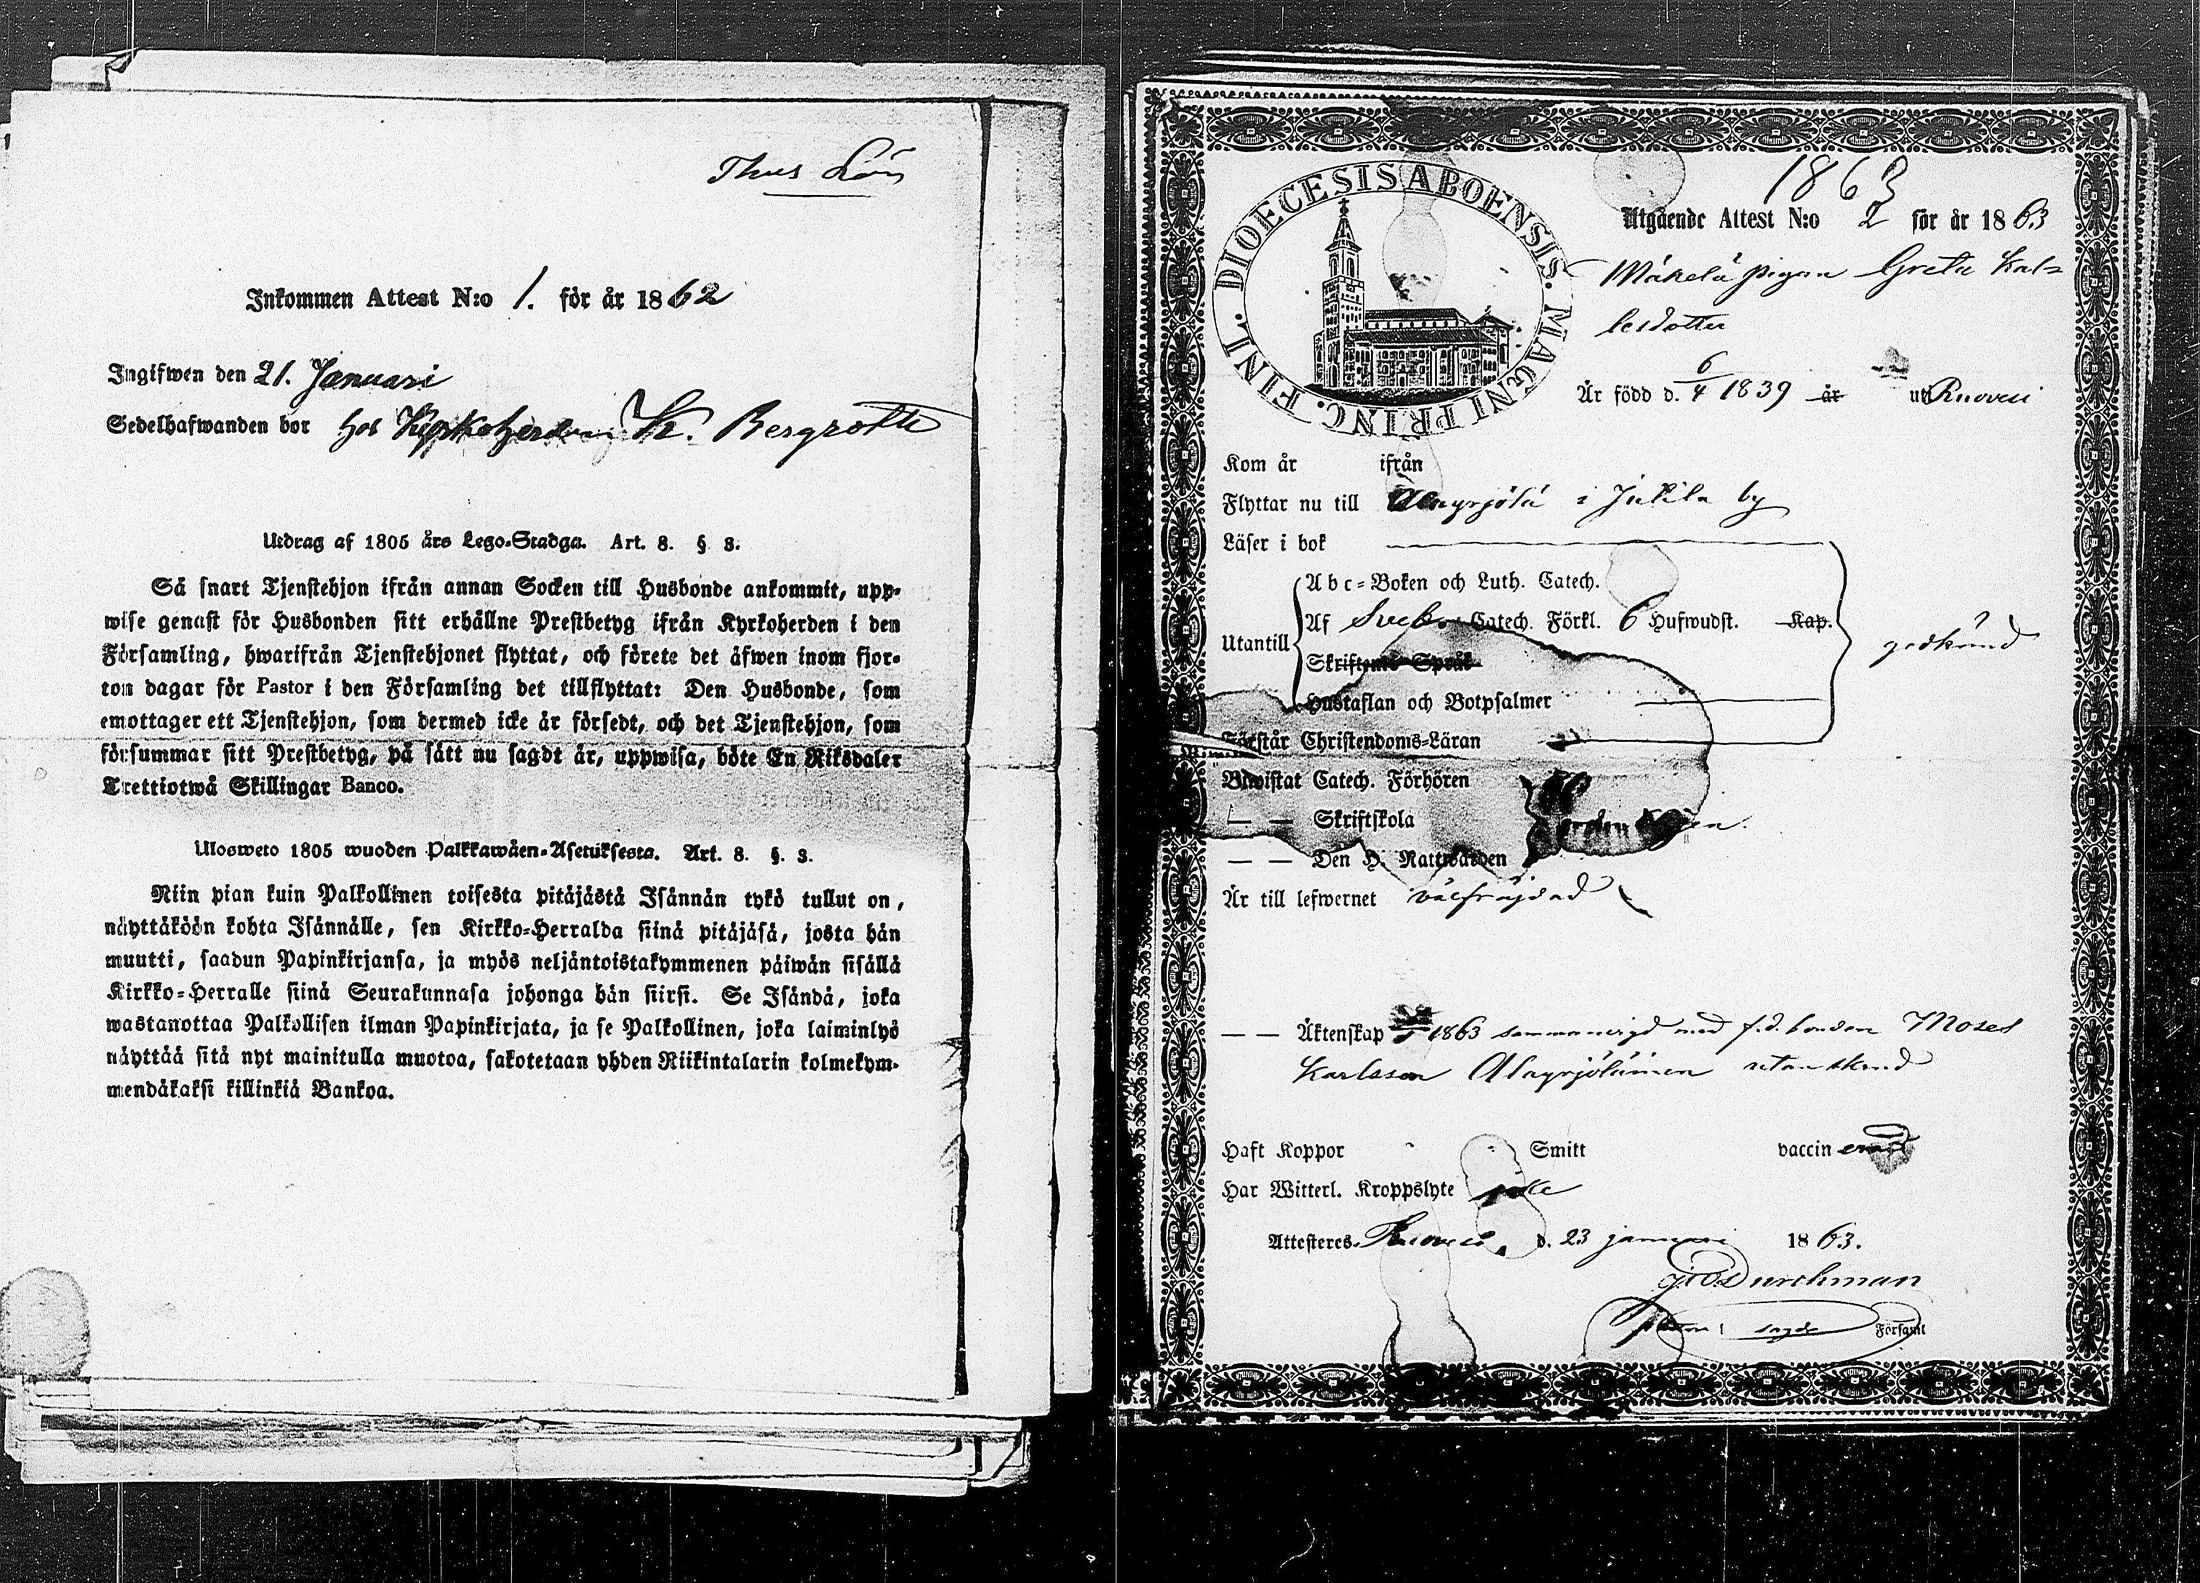 Inkommen Attest N:o 1. för år 1862
Ingifwen den 21. Januari
Sedelhafwanden bor hos Kyrkoherden K. Bergroth
Utdrag af 1805 års Lego-Stadga. Art. 8. § 3.
Så snart Tjenstehjon ifrån annan Socken till Husbonde ankommit, upp-
wise genast för Husbonden sitt erhållne Prestbetyg ifrån Kyrkoherden i den
Församling, hwarifrån Tjenstehjonet flyttat, och förete det äfwen inom fjor-
ton dagar för Pastor i den Församling det tillflyttat: Den Husbonde, som
emottager ett Tjenstehjon, som dermed icke är försedt, och det Tjenstehjon, som
försummar sitt Prestbetyg, på sätt nu sagdt är, uppwisa, böte En Riksdaler
Trettiotwå Skillingar Banco.
Ulosweto 1805 wuoden Palkkawäen-Asetuksesta. Art. 8. §. 3.
Niin pian kuin Palkollinen toisesta pitäjästä Isännän tykö tullut on,
näyttäköön kohta Isännälle, sen Kirkko-Herralda siinä pitäjäsä, josta hän
muutti, saadun Papinkirjansa, ja myös neljäntoistakymmenen päiwän sisällä
Kirkko-Herralle siinä Seurakunnasa johonga hän siirsi. Se Isändä, joka
wastanottaa Palkollisen ilman Papinkirjata, ja se Palkollinen, joka laiminlyö
näyttää sitä nyt mainitulla muotoa, sakotetaan yhden Riikintalarin kolmekym-
mendäkaksi killinkiä Bankoa.
DIOECESIS ABOENSIS. MAGNI PRINC. FINL.
1863
Utgående Attest N:o 2 för år 1863
Mäkelä pigan Greta Kal-
lesdotter
Är född d. 6/4 1839 år uti Ruovesi
Kom år ifrån
Flyttar nu till Alayrjölä i Jäkilä by
Läser i bok
Abc-Boken och Luth. Catech.
Utantill Af Sveb. Catech. Förkl. 6 Hufwudst. Kap. godkänd
Skriftenes Språk
Hustaflan och Botpsalmer
Förstår Christendoms-Läran
Biwistat Catech. Förhören
— — Skriftskola
— — Den H. Nattwarden
Är till lefwernet välfräjdad
— — Äktenskap 1863 sammanvigd med f.d. bonden Moses
Karlsson Alayrjöläinen utan
Haft Koppor Smitt vaccin
Har Witterl. Kroppslyte icke
Attesteres. Ruovesi, d. 23 januari 1863.
Durchman
i sagde Församl